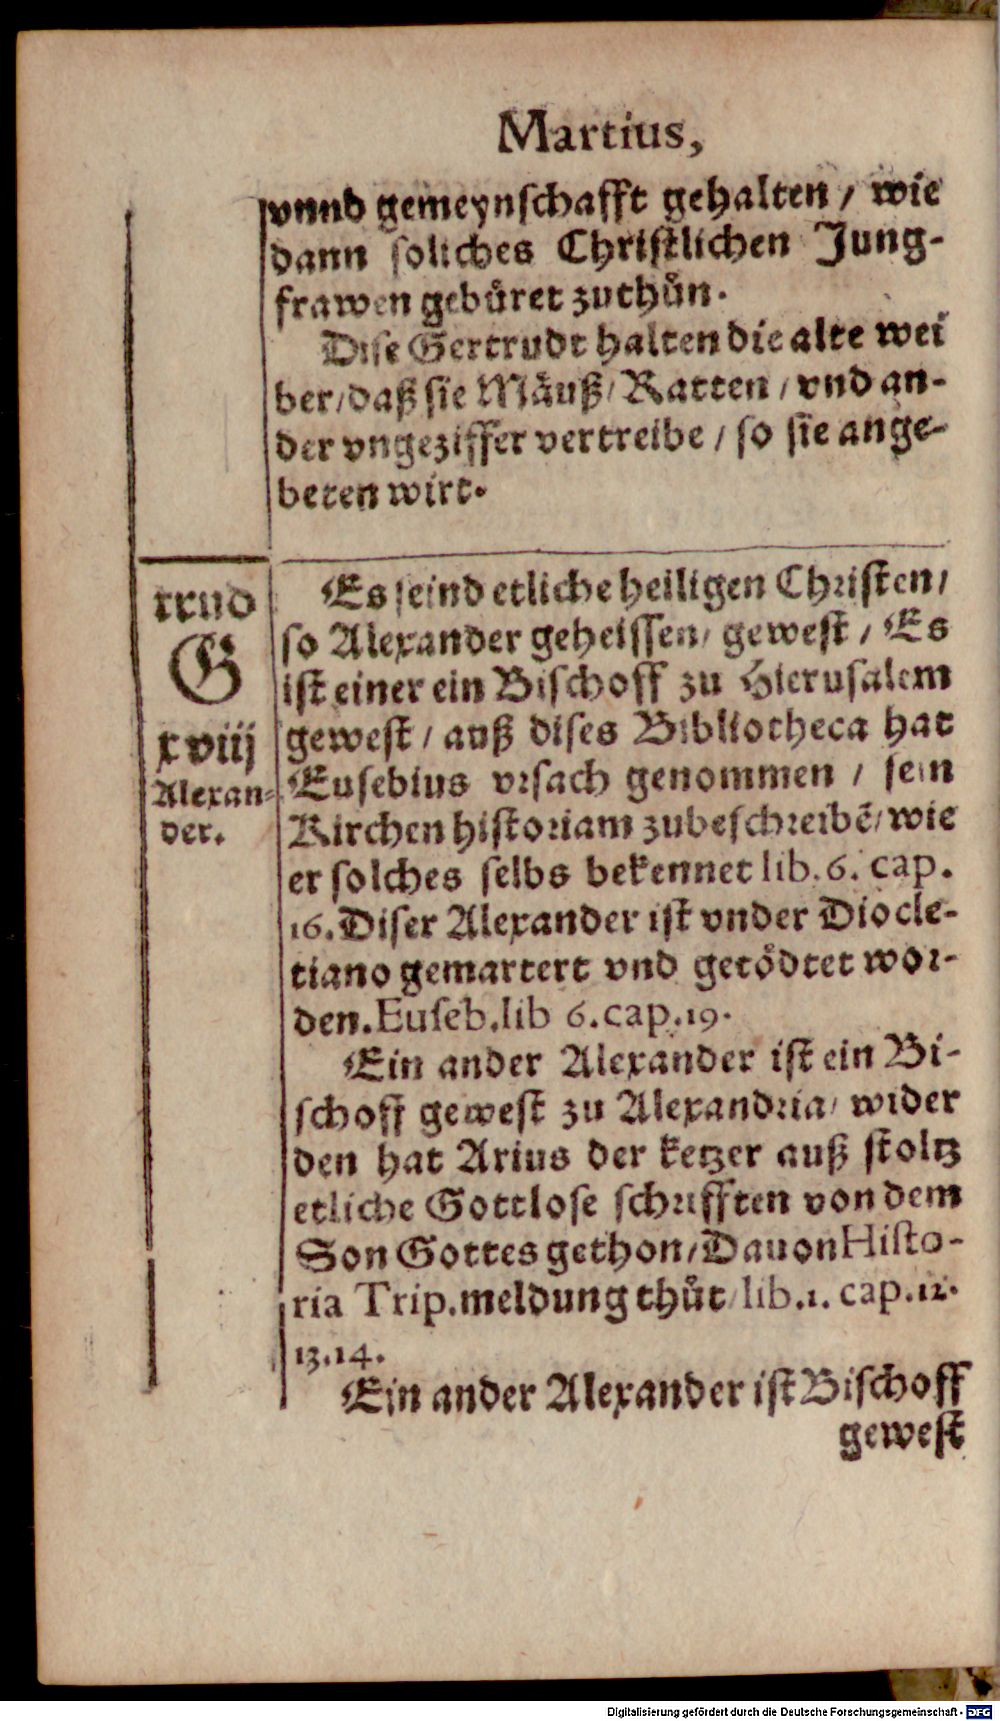 Martius,
vnnd gemeynschafft gehalten / wie
dann soliches Christlichen Jung-
frawen gebůret zuthůn.
Dise Gertrudt halten die alte wei
ber / daß sie Mäuß / Ratten / vnd an-
der vngeziffer vertreibe / so sie ange-
beten wirt.
xxvd
G
xviij
Alexan=
der.
Es seind etliche heiligen Christen /
so Alexander geheissen / gewest / Es
ist einer ein Bischoff zu Hierusalem
gewest / auß dises Bibliotheca hat
Eusebius vrsach genommen / sein
Kirchen historiam zubeschreibē / wie
er solches selbs bekennet lib. 6. cap.
16. Diser Alexander ist vnder Diocle-
tiano gemartert vnd getödtet wor-
den. Euseb. lib 6. cap. 19.
Ein ander Alexander ist ein Bi-
schoff gewest zu Alexandria / wider
den hat Arius der ketzer auß stoltz
etliche Gottlose schrifften von dem
Son Gottes gethon / Dauon Histo-
ria Trip. meldung thůt / lib. 1. cap. 12.
13. 14.
Ein ander Alexander ist Bischoff
gewest
Digitalisierung gefördert durch die Deutsche Forschungsgemeinschaft - DFG